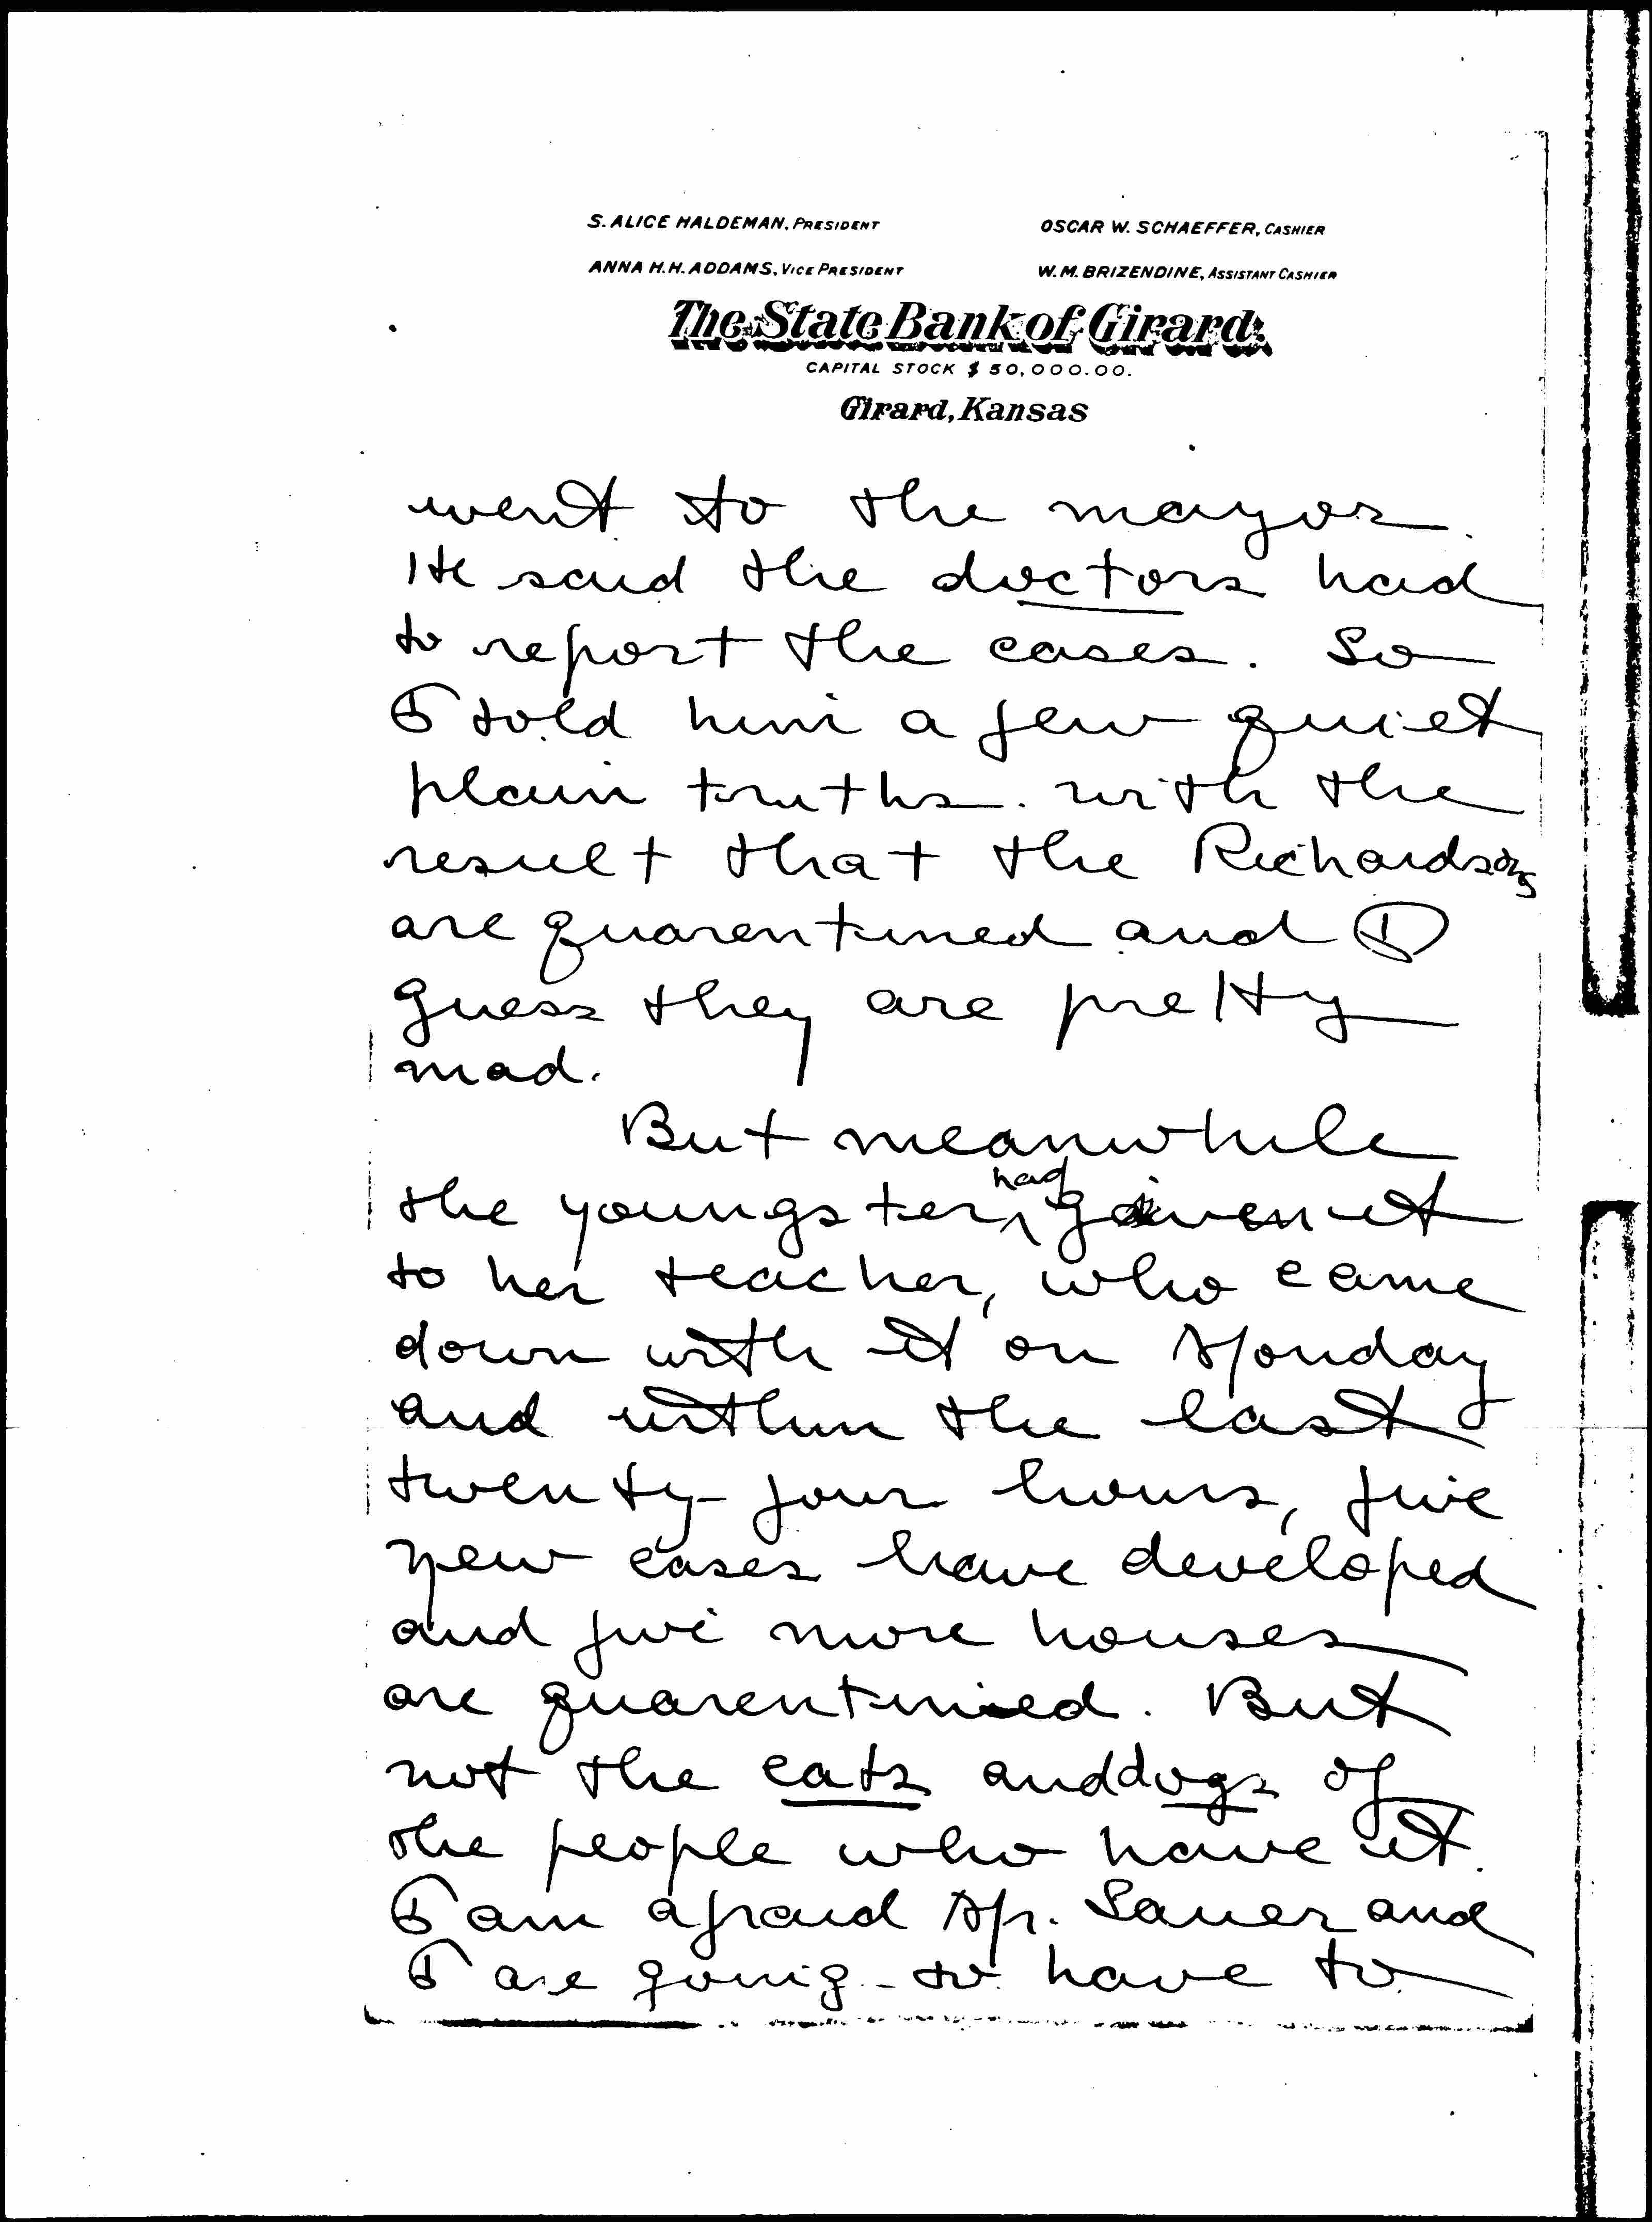 S. ALICE HALDEMAN, PRESIDENT
OSCAR W. SCHAEFFER, CASHIER
ANNA H. H. ADDAMS, VICE PRESIDENT
W. M. BRIZENDINE, ASSISTANT CASHIER
The State Bank of Girard.
CAPITAL STOCK $50,000.00.
Girard, Kansas
went to the mayor.
He said the doctors had
to report the cases. So
I told him a few quiet
plain truths. with the
result that the Richardsons
are quarentined and I
guess they are pretty
mad.
But meanwhile
the youngster had given it
to her teacher, who came
down with it on Monday
and within the last
twenty-four hours, five
new cases have developed
and five more houses
are quarentined. But
not the cats and dogs of
the people who have it.
I am afraid Mr. Sauer and
I are going to have to